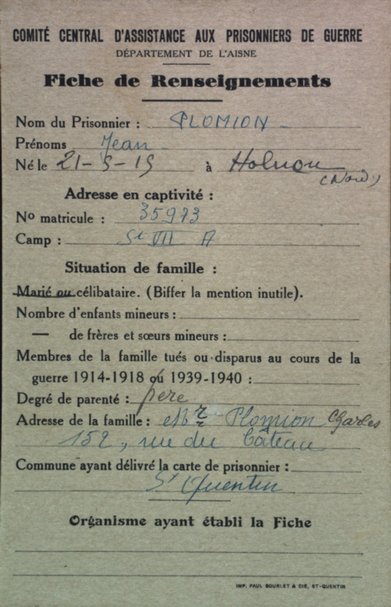 COMITÉ CENTRAL D'ASSISTANCE AUX PRISONNIERS DE GUERRE
DÉPARTEMENT DE L'AISNE
Fiche de Renseignements
Nom du Prisonnier : PLOMION
Prénoms Jean
Né le 21-5-15 à Holnon
(Nord)
Adresse en captivité :
No matricule : 35973
Camp : St VII A
Situation de famille :
Marié ou célibataire. (Biffer la mention inutile).
Nombre d'enfants mineurs :
— de frères et sœurs mineurs :
Membres de la famille tués ou disparus au cours de la
guerre 1914-1918 ou 1939-1940 :
Degré de parenté : père
Adresse de la famille : Mr Plomion Charles
152, rue du Câteau
Commune ayant délivré la carte de prisonnier :
St Quentin
Organisme ayant établi la Fiche
IMP. PAUL BOURLET & CIE, ST-QUENTIN